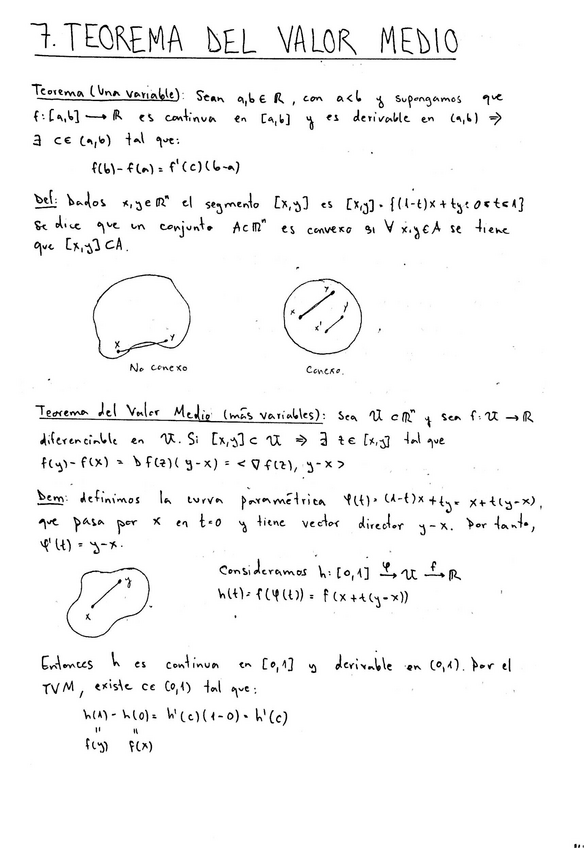 7. TEOREMA DEL VALOR MEDIO
Teorema (Una variable): Sean a,b ∈ ℝ, con a<b y supongamos que
f: [a,b] → ℝ es continua en [a,b] y es derivable en (a,b) ⇒
∃ c ∈ (a,b) tal que:
f(b)-f(a) = f'(c)(b-a)
Def: Dados x,y ∈ ℝⁿ el segmento [x,y] es [x,y] = {(1-t)x + ty : 0 ≤ t ≤ 1}
Se dice que un conjunto A ⊂ ℝⁿ es convexo si ∀ x,y ∈ A se tiene
que [x,y] ⊂ A.
x y
x y
x' y
No conexo
Conexo.
Teorema del Valor Medio (más variables): Sea U ⊂ ℝⁿ y sea f: U → ℝ
diferenciable en U. Si [x,y] ⊂ U ⇒ ∃ z ∈ [x,y] tal que
f(y)-f(x) = Df(z)(y-x) = <∇f(z), y-x>
Dem: definimos la curva paramétrica φ(t) = (1-t)x + ty = x+t(y-x),
que pasa por x en t=0 y tiene vector director y-x. Por tanto,
φ'(t) = y-x.
x y
Consideramos h: [0,1] →^φ U →^f ℝ
h(t) = f(φ(t)) = f(x+t(y-x))
Entonces h es continua en [0,1] y derivable en (0,1). Por el
TVM, existe c ∈ (0,1) tal que:
h(1) - h(0) = h'(c)(1-0) = h'(c)
= =
f(y) f(x)